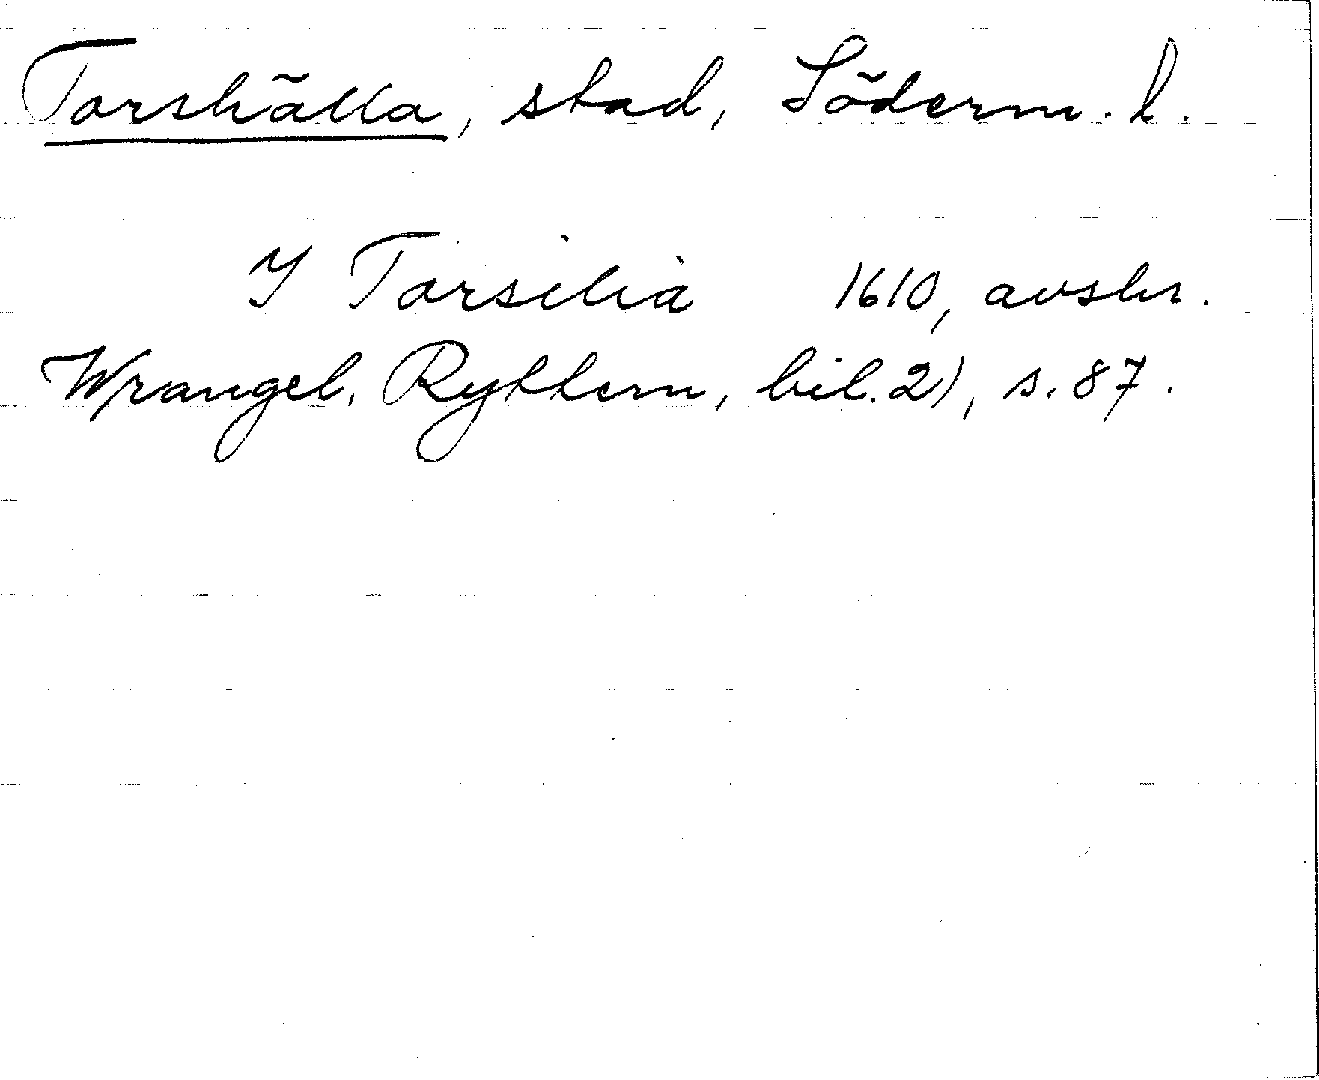 Torshälla, stad, Söderm. l.
I Torsilia 1610, avskr.
Wrangel, Ryttern, bil. 2), s. 87.